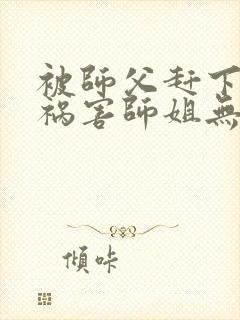 被師父赶下
祸害師姐無
傾咔